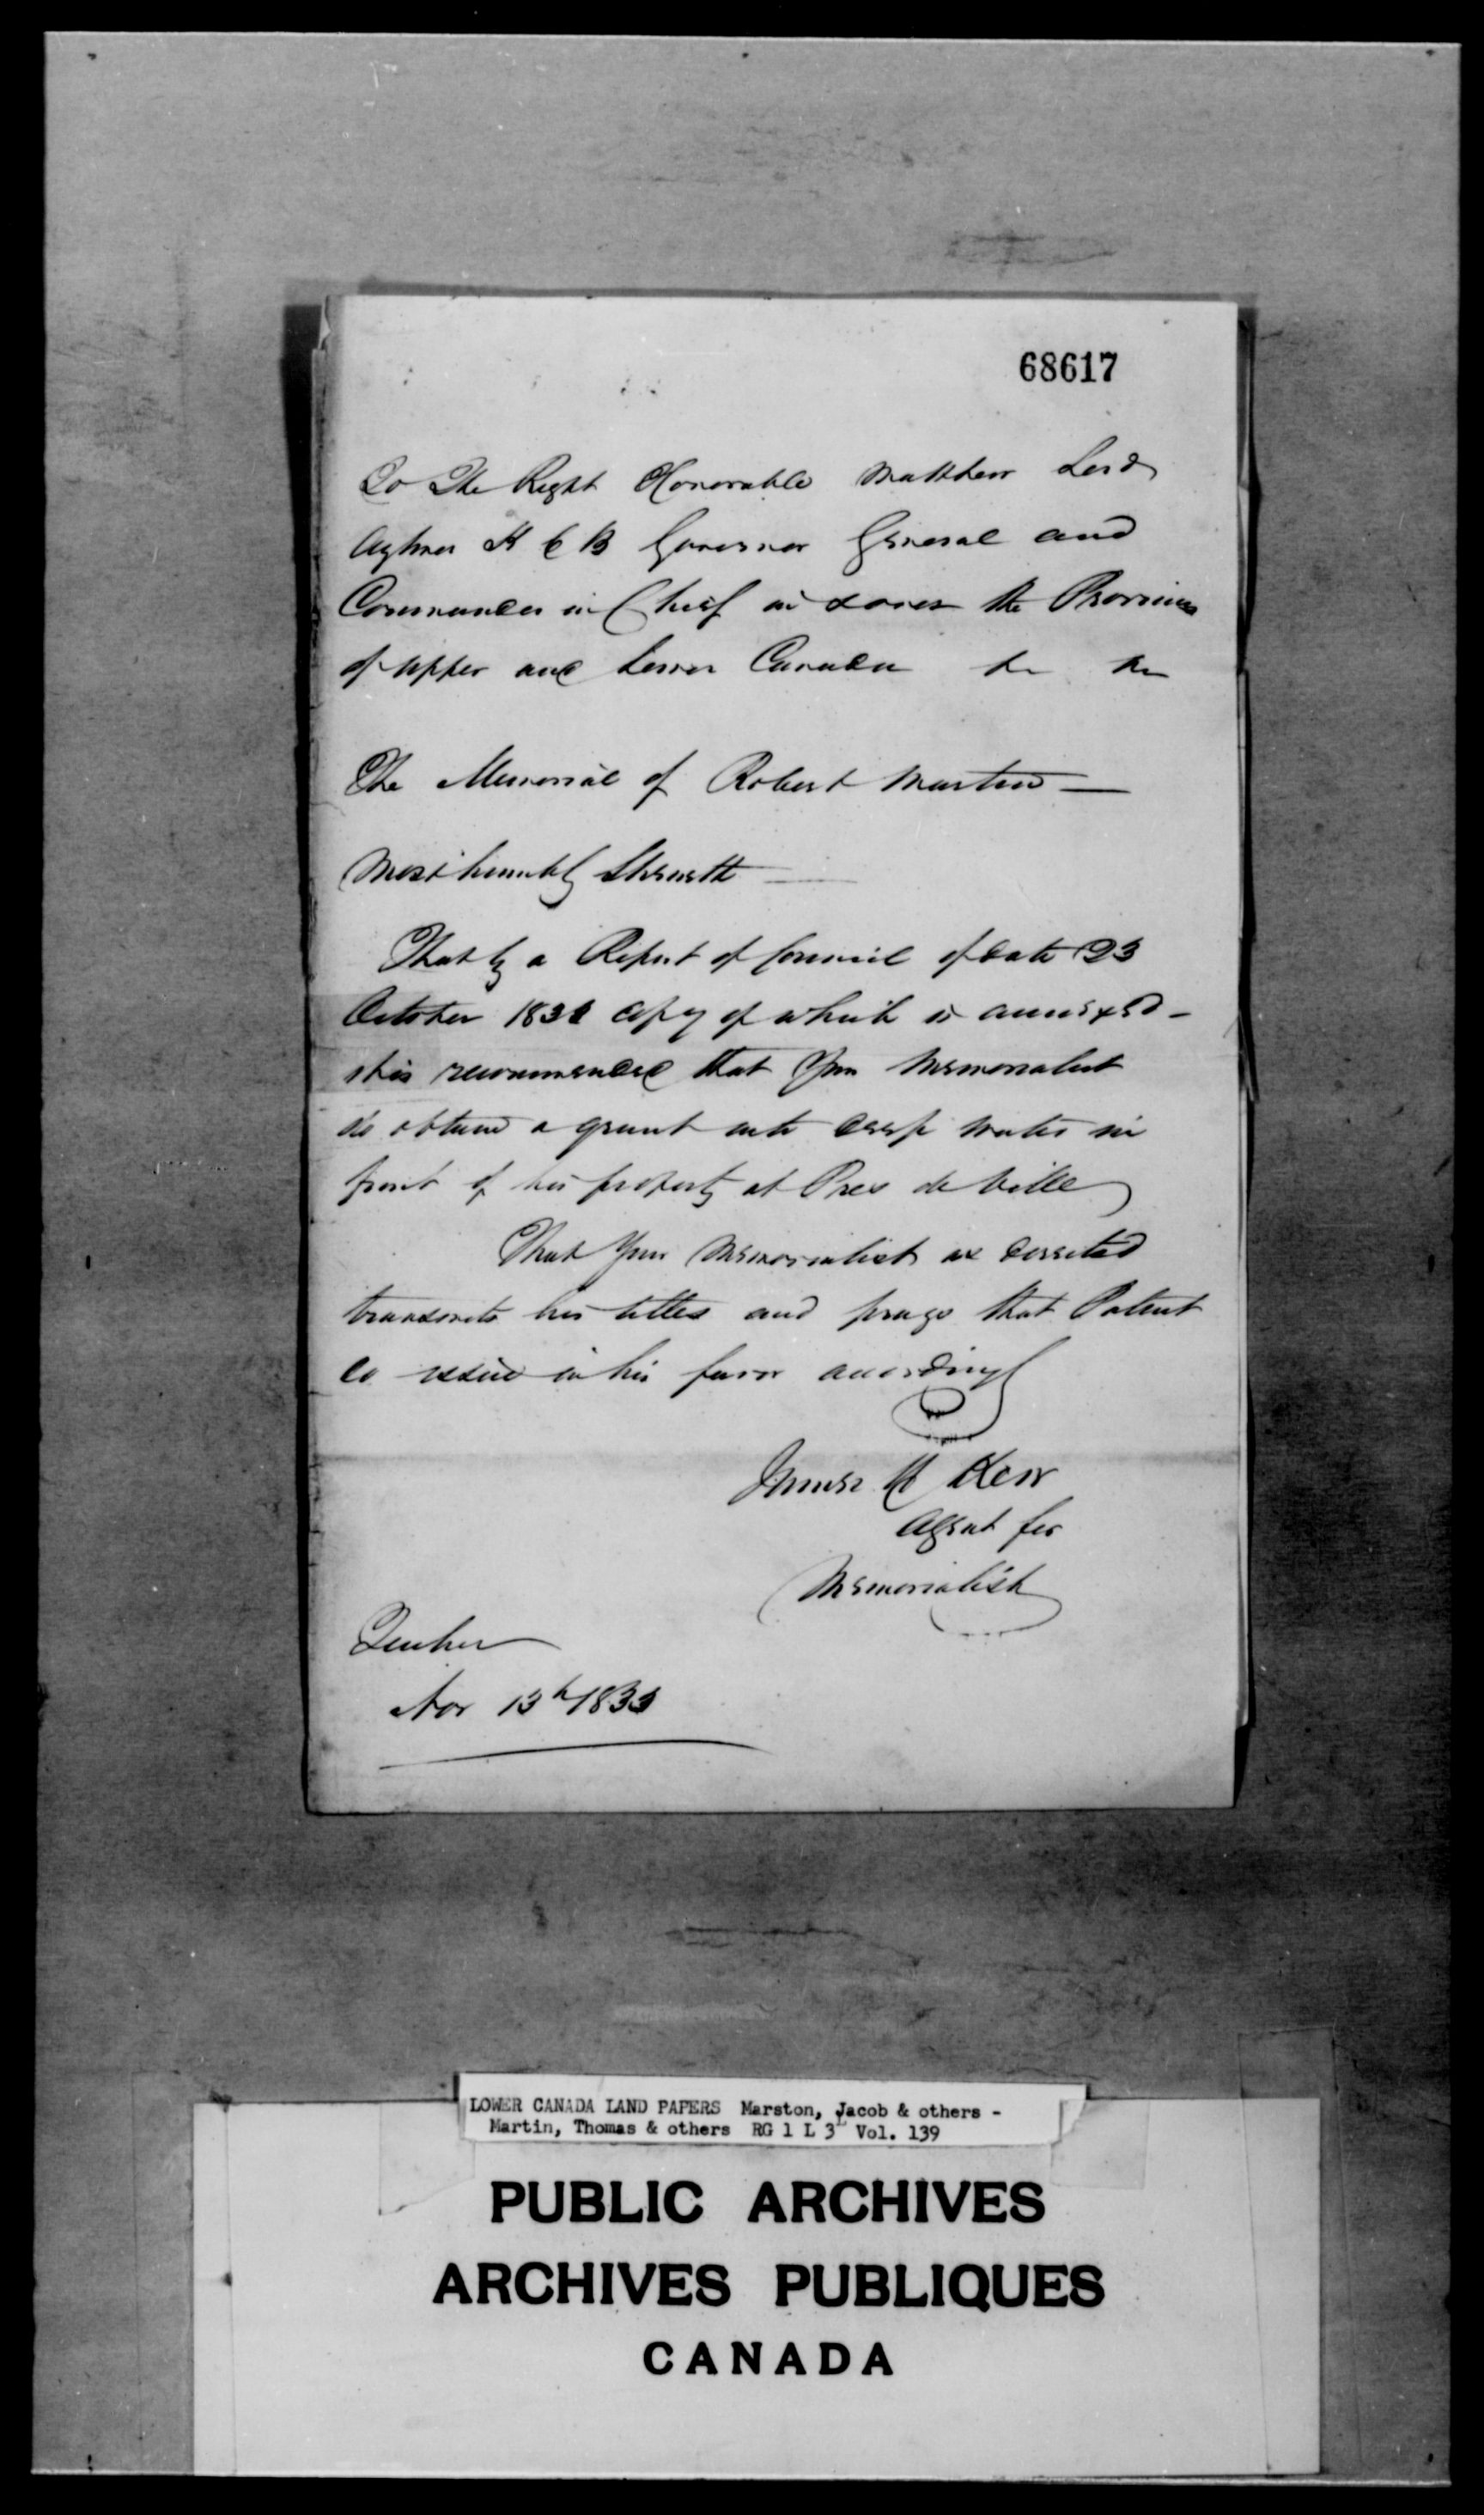 68617
To The Right Honorable Matthew Lord
Aylmer K C B Governor General and
Commander in Chief in & over the Provinces
of Upper and Lower Canada &c &c
The Memorial of Robert Martin —
Most humbly Sheweth —
That by a Report of Council of date 23
October 183 copy of which is annexed -
it is recommended that Your Memorialist
do obtain a grant into deep water in
front of his property at Pres de Ville
That Your Memorialist as directed
transmits his titles and prays that Patent
do issue in his favor accordingly
James H Kerr
Agent for
Memorialist
Quebec
Nov 13th 1833
LOWER CANADA LAND PAPERS Marston, Jacob & others -
Martin, Thomas & others RG 1 L 3L Vol. 139
PUBLIC ARCHIVES
ARCHIVES PUBLIQUES
CANADA